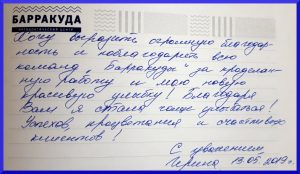 БАРРАКУДА
Хочу выразить огромную благодар-
ность и поблагодарить всю
команду "Барракуды" за проделан-
ную работу и мою новую
красивую улыбку! Благодаря
Вам я стала чаще улыбаться!
Успехов, процветания и счастливых
клиентов!
С уважением
Ирина 13.05.2019г.